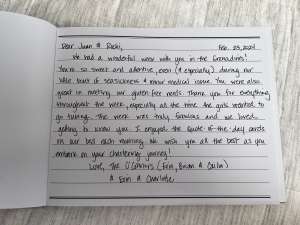 Dear Juan & Ricki, Feb. 23, 2024
We had a wonderful week with you in the Grenadines!
You're so sweet and attentive, even (& especially) during our
little bout of seasickness & minor medical issue. You were also
great in meeting our gluten free needs. Thank you for everything
throughout the week, especially all the time the girls wanted to
go tubing. The week was truly fabulous and we loved
getting to know you. I enjoyed the quote-of-the day cards
on our bed each morning. We wish you all the best as you
embark on your chartering journey!
Love, The O'Connors (Erin, Brian &
& Erin & Charlotte